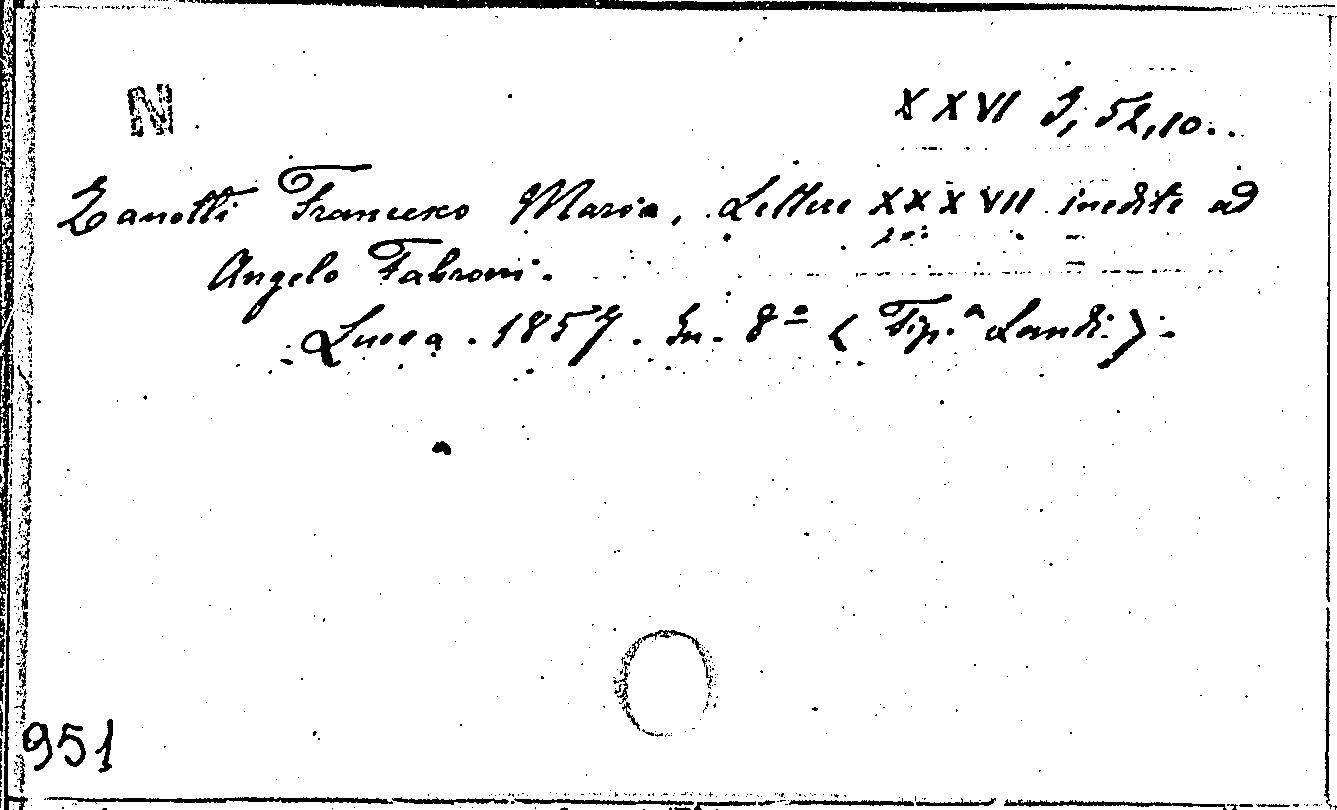 N
XXVI J, 52, 10.
Zanotti Francesco Maria, Lettere XXXVII inedite ad
Angelo Fabroni.
Lucca. 1857. In-8º (Tip.ª Landi).
951